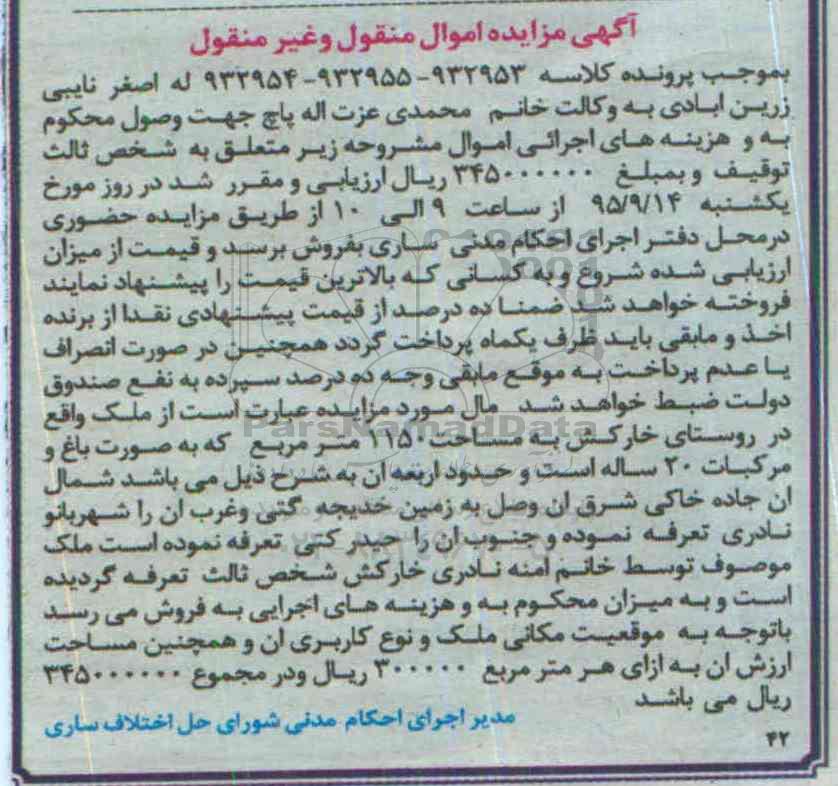 آگهی مزایده اموال منقول وغیر منقول
بموجب پرونده کلاسه ۹۳۲۹۵۳-۹۳۲۹۵۵-۹۳۲۹۵۴ له اصغر نایبی
زرین ابادی به وکالت خانم محمدی عزت اله پاچ جهت وصول محکوم
به و هزینه های اجرائی اموال مشروحه زیر متعلق به شخص ثالث
توقیف وبمبلغ ۳۴۵۰۰۰۰۰۰ ریال ارزیابی و مقرر شد در روز مورخ
یکشنبه ۹۵/۹/۱۴ از ساعت ۹ الی ۱۰ از طریق مزایده حضوری
درمحل دفتر اجرای احکام مدنی ساری بفروش برسد و قیمت از میزان
ارزیابی شده شروع و به کسانی که بالاترین قیمت را پیشنهاد نمایند
فروخته خواهد شد ضمنا ده درصد از قیمت پیشنهادی نقدا از برنده
اخذ و مابقی باید ظرف یکماه پرداخت گردد همچنین در صورت انصراف
یا عدم پرداخت به موقع مابقی وجه ده درصد سپرده به نفع صندوق
دولت ضبط خواهد شد مال مورد مزایده عبارت است از ملک واقع
در روستای خارکش به مساحت ۱۱۵۰ متر مربع که به صورت باغ و
مرکبات ۲۰ ساله است و حدود اربعه ان به شرح ذیل می باشد شمال
ان جاده خاکی شرق ان وصل به زمین خدیجه گتی وغرب ان را شهربانو
نادری تعرفه نموده و جنوب ان را حیدر کتی تعرفه نموده است ملک
موصوف توسط خانم امنه نادری خارکش شخص ثالث تعرفه گردیده
است و به میزان محکوم به و هزینه های اجرایی به فروش می رسد
باتوجه به موقعیت مکانی ملک و نوع کاربری ان و همچنین مساحت
ارزش ان به ازای هر متر مربع ۳۰۰۰۰۰ ریال ودر مجموع ۳۴۵۰۰۰۰۰۰
ریال می باشد
مدیر اجرای احکام مدنی شورای حل اختلاف ساری
۴۲
ParsNamadData